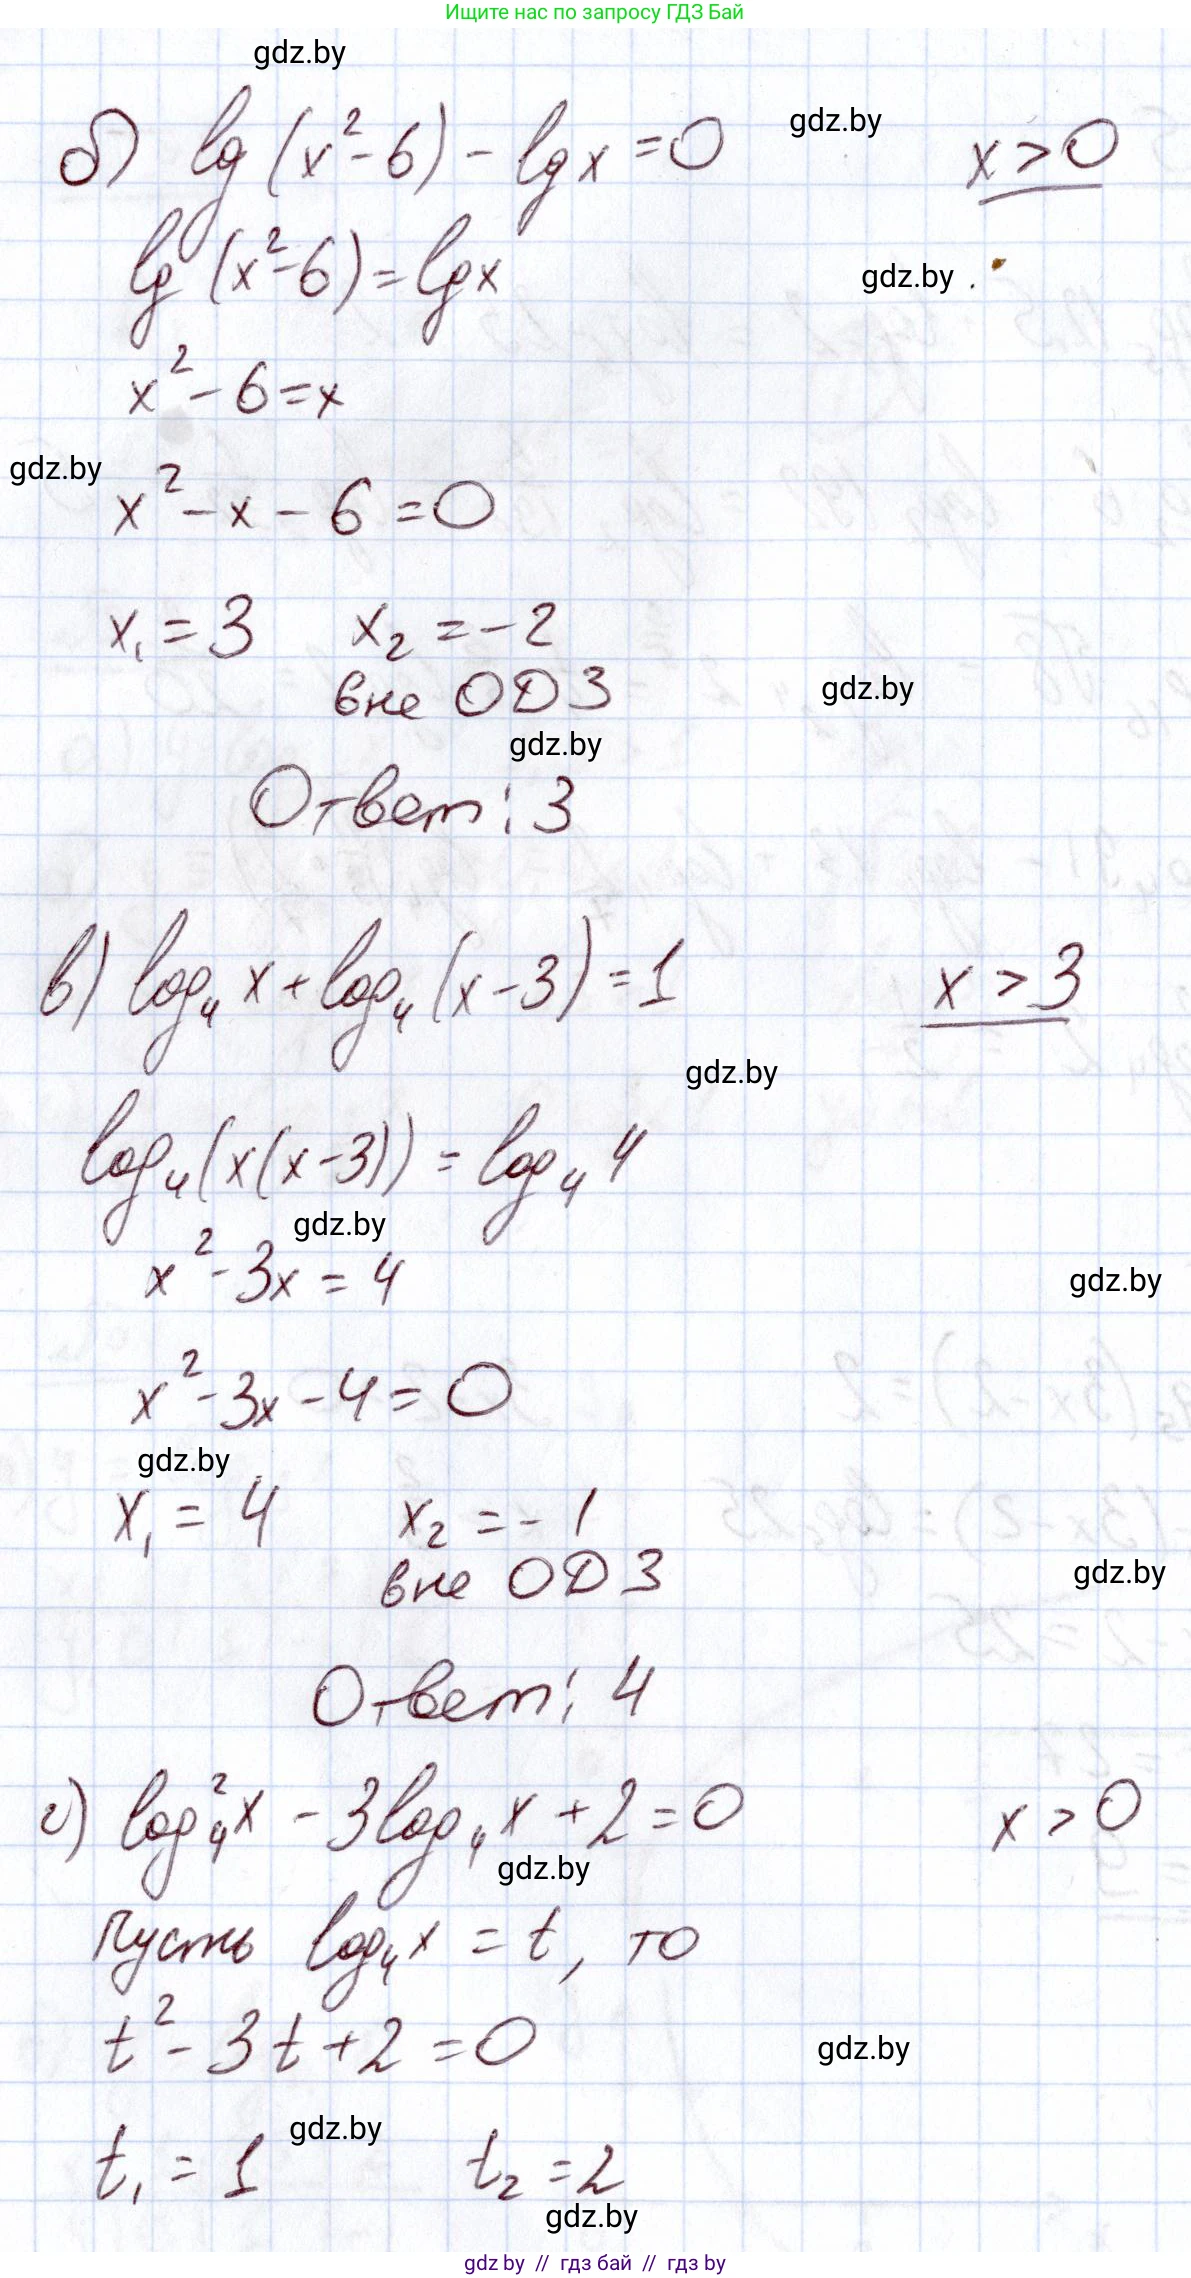 Ищите нас по запросу ГДЗ Бай
gdz.by
б) lg(x²-6) - lgx = 0    x > 0
gdz.by
lg(x²-6) = lgx
gdz.by
x² - 6 = x
gdz.by
x² - x - 6 = 0
x₁ = 3    x₂ = -2
вне ОДЗ
gdz.by
gdz.by
Ответ: 3
в) log₄ x + log₄ (x-3) = 1    x > 3
gdz.by
log₄(x(x-3)) = log₄ 4
gdz.by
x² - 3x = 4
gdz.by
x² - 3x - 4 = 0
gdz.by
x₁ = 4    x₂ = -1
вне ОДЗ
gdz.by
Ответ: 4
г) log₄² x - 3log₄ x + 2 = 0    x > 0
gdz.by
Пусть log₄ x = t, то
t² - 3t + 2 = 0
gdz.by
gdz.by
t₁ = 1    t₂ = 2
gdz.by
gdz by // гдз бай // гдз by